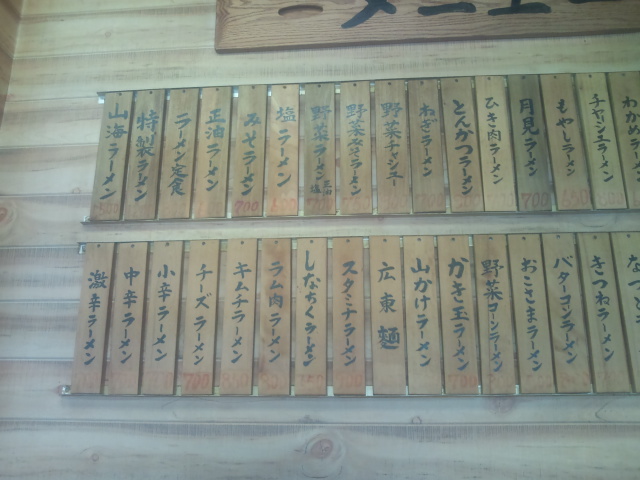 メニュー
山海ラーメン
特製ラーメン
ラーメン定食
正油ラーメン
みそラーメン 700
塩ラーメン
野菜ラーメン 正油 塩
野菜みそラーメン
野菜チャシュー
ねぎラーメン
とんかつラーメン
ひき肉ラーメン
月見ラーメン 700
もやしラーメン
チャシュラーメン
わかめラーメン
激辛ラーメン
中辛ラーメン
小辛ラーメン
チーズラーメン 700
キムチラーメン
ラム肉ラーメン
しなちくラーメン
スタミナラーメン
広東麺
山かけラーメン
かき玉ラーメン 700
野菜コーンラーメン
おこさまラーメン
バターコーンラーメン
きつねラーメン